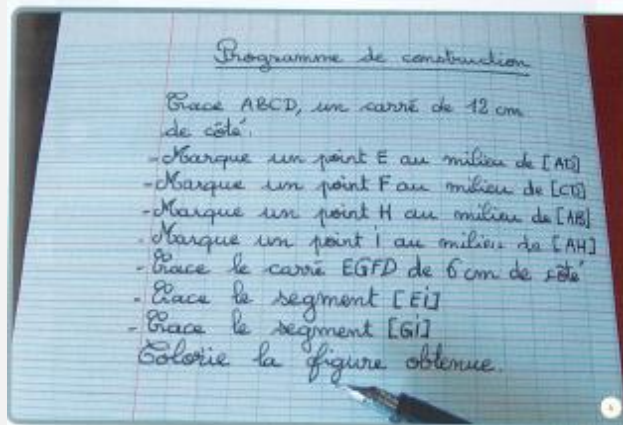 Programme de construction
Trace ABCD, un carré de 12 cm
de côté.
- Marque un point E au milieu de [AD]
- Marque un point F au milieu de [CD]
- Marque un point H au milieu de [AB]
- Marque un point i au milieu de [AH]
- Trace le carré EGFD de 6 cm de côté
- Trace le segment [Ei]
- Trace le segment [Gi]
Colorie la figure obtenue.